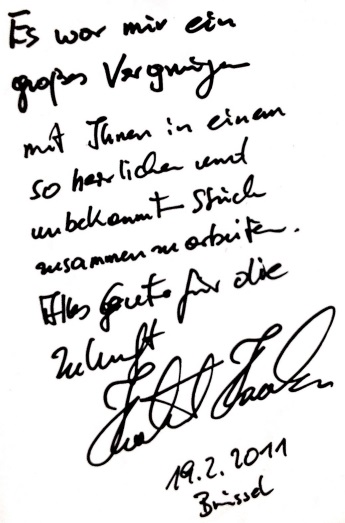 Es war mir ein
großes Vergnügen
mit Ihnen in einem
so herrlichen und
unbekannt Stück
zusammen zu arbeiten.
Alles Gute für die
Zukunft
19.2.2011
Brüssel